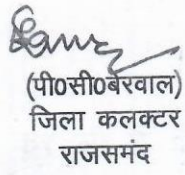 (पी०सी०बेरवाल)
जिला कलक्टर
राजसमंद